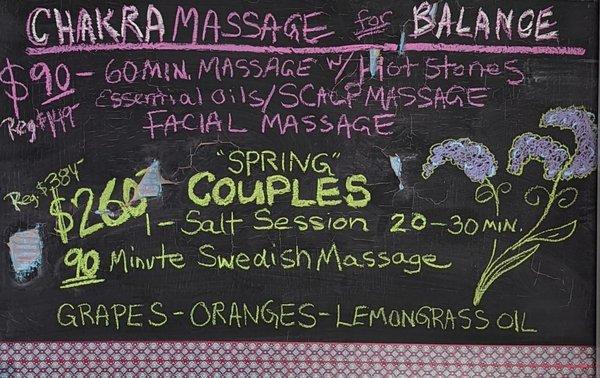 CHAKRA MASSAGE for BALANCE
$90 - 60 MIN. MASSAGE w/ Hot Stones
Essential Oils/SCALP MASSAGE
Reg $149 FACIAL MASSAGE
"SPRING"
Reg $385
$260 COUPLES
1 - Salt Session 20-30 MIN.
90 Minute Swedish Massage
GRAPES - ORANGES - LEMONGRASS OIL